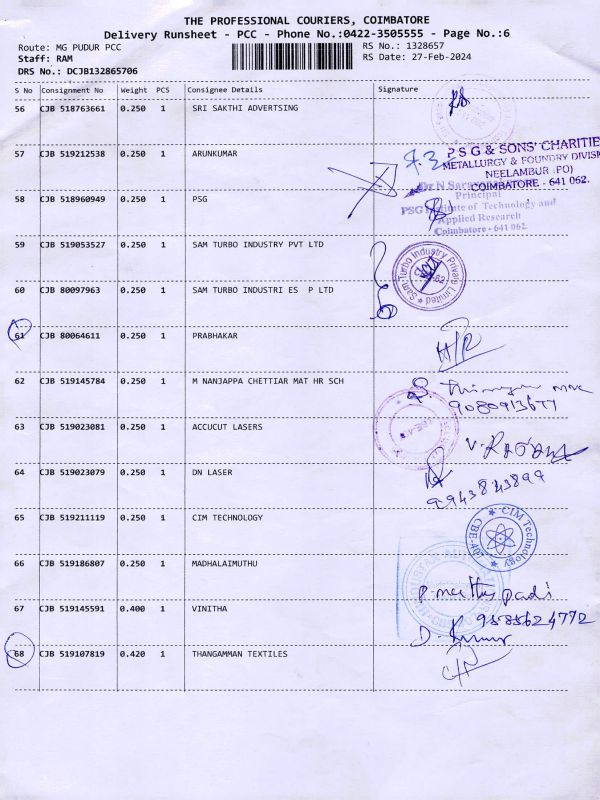 THE PROFESSIONAL COURIERS, COIMBATORE
Delivery Runsheet - PCC - Phone No.:0422-3505555 - Page No.:6
Route: MG PUDUR PCC RS No.: 1328657
Staff: RAM RS Date: 27-Feb-2024
DRS No.: DCJB132865706
S No Consignment No Weight PCS Consignee Details Signature
56 CJB 518763661 0.250 1 SRI SAKTHI ADVERTSING
57 CJB 519212538 0.250 1 ARUNKUMAR
PSG & SONS' CHARITIE
METALLURGY & FOUNDRY DIVISI
NEELAMBUR (PO)
COIMBATORE - 641 062.
58 CJB 518960949 0.250 1 PSG
Principal
PSG Institute of Technology and
Applied Research
Coimbatore - 641 062.
59 CJB 519053527 0.250 1 SAM TURBO INDUSTRY PVT LTD
Sam Turbo Industry Private Limited
60 CJB 80097963 0.250 1 SAM TURBO INDUSTRI ES P LTD
61 CJB 80064611 0.250 1 PRABHAKAR
62 CJB 519145784 0.250 1 M NANJAPPA CHETTIAR MAT HR SCH
63 CJB 519023081 0.250 1 ACCUCUT LASERS
64 CJB 519023079 0.250 1 DN LASER
9943843899
65 CJB 519211119 0.250 1 CIM TECHNOLOGY
CIM Technology
66 CJB 519186807 0.250 1 MADHALAIMUTHU
67 CJB 519145591 0.400 1 VINITHA
9585624772
D. Kumar
68 CJB 519107819 0.420 1 THANGAMMAN TEXTILES